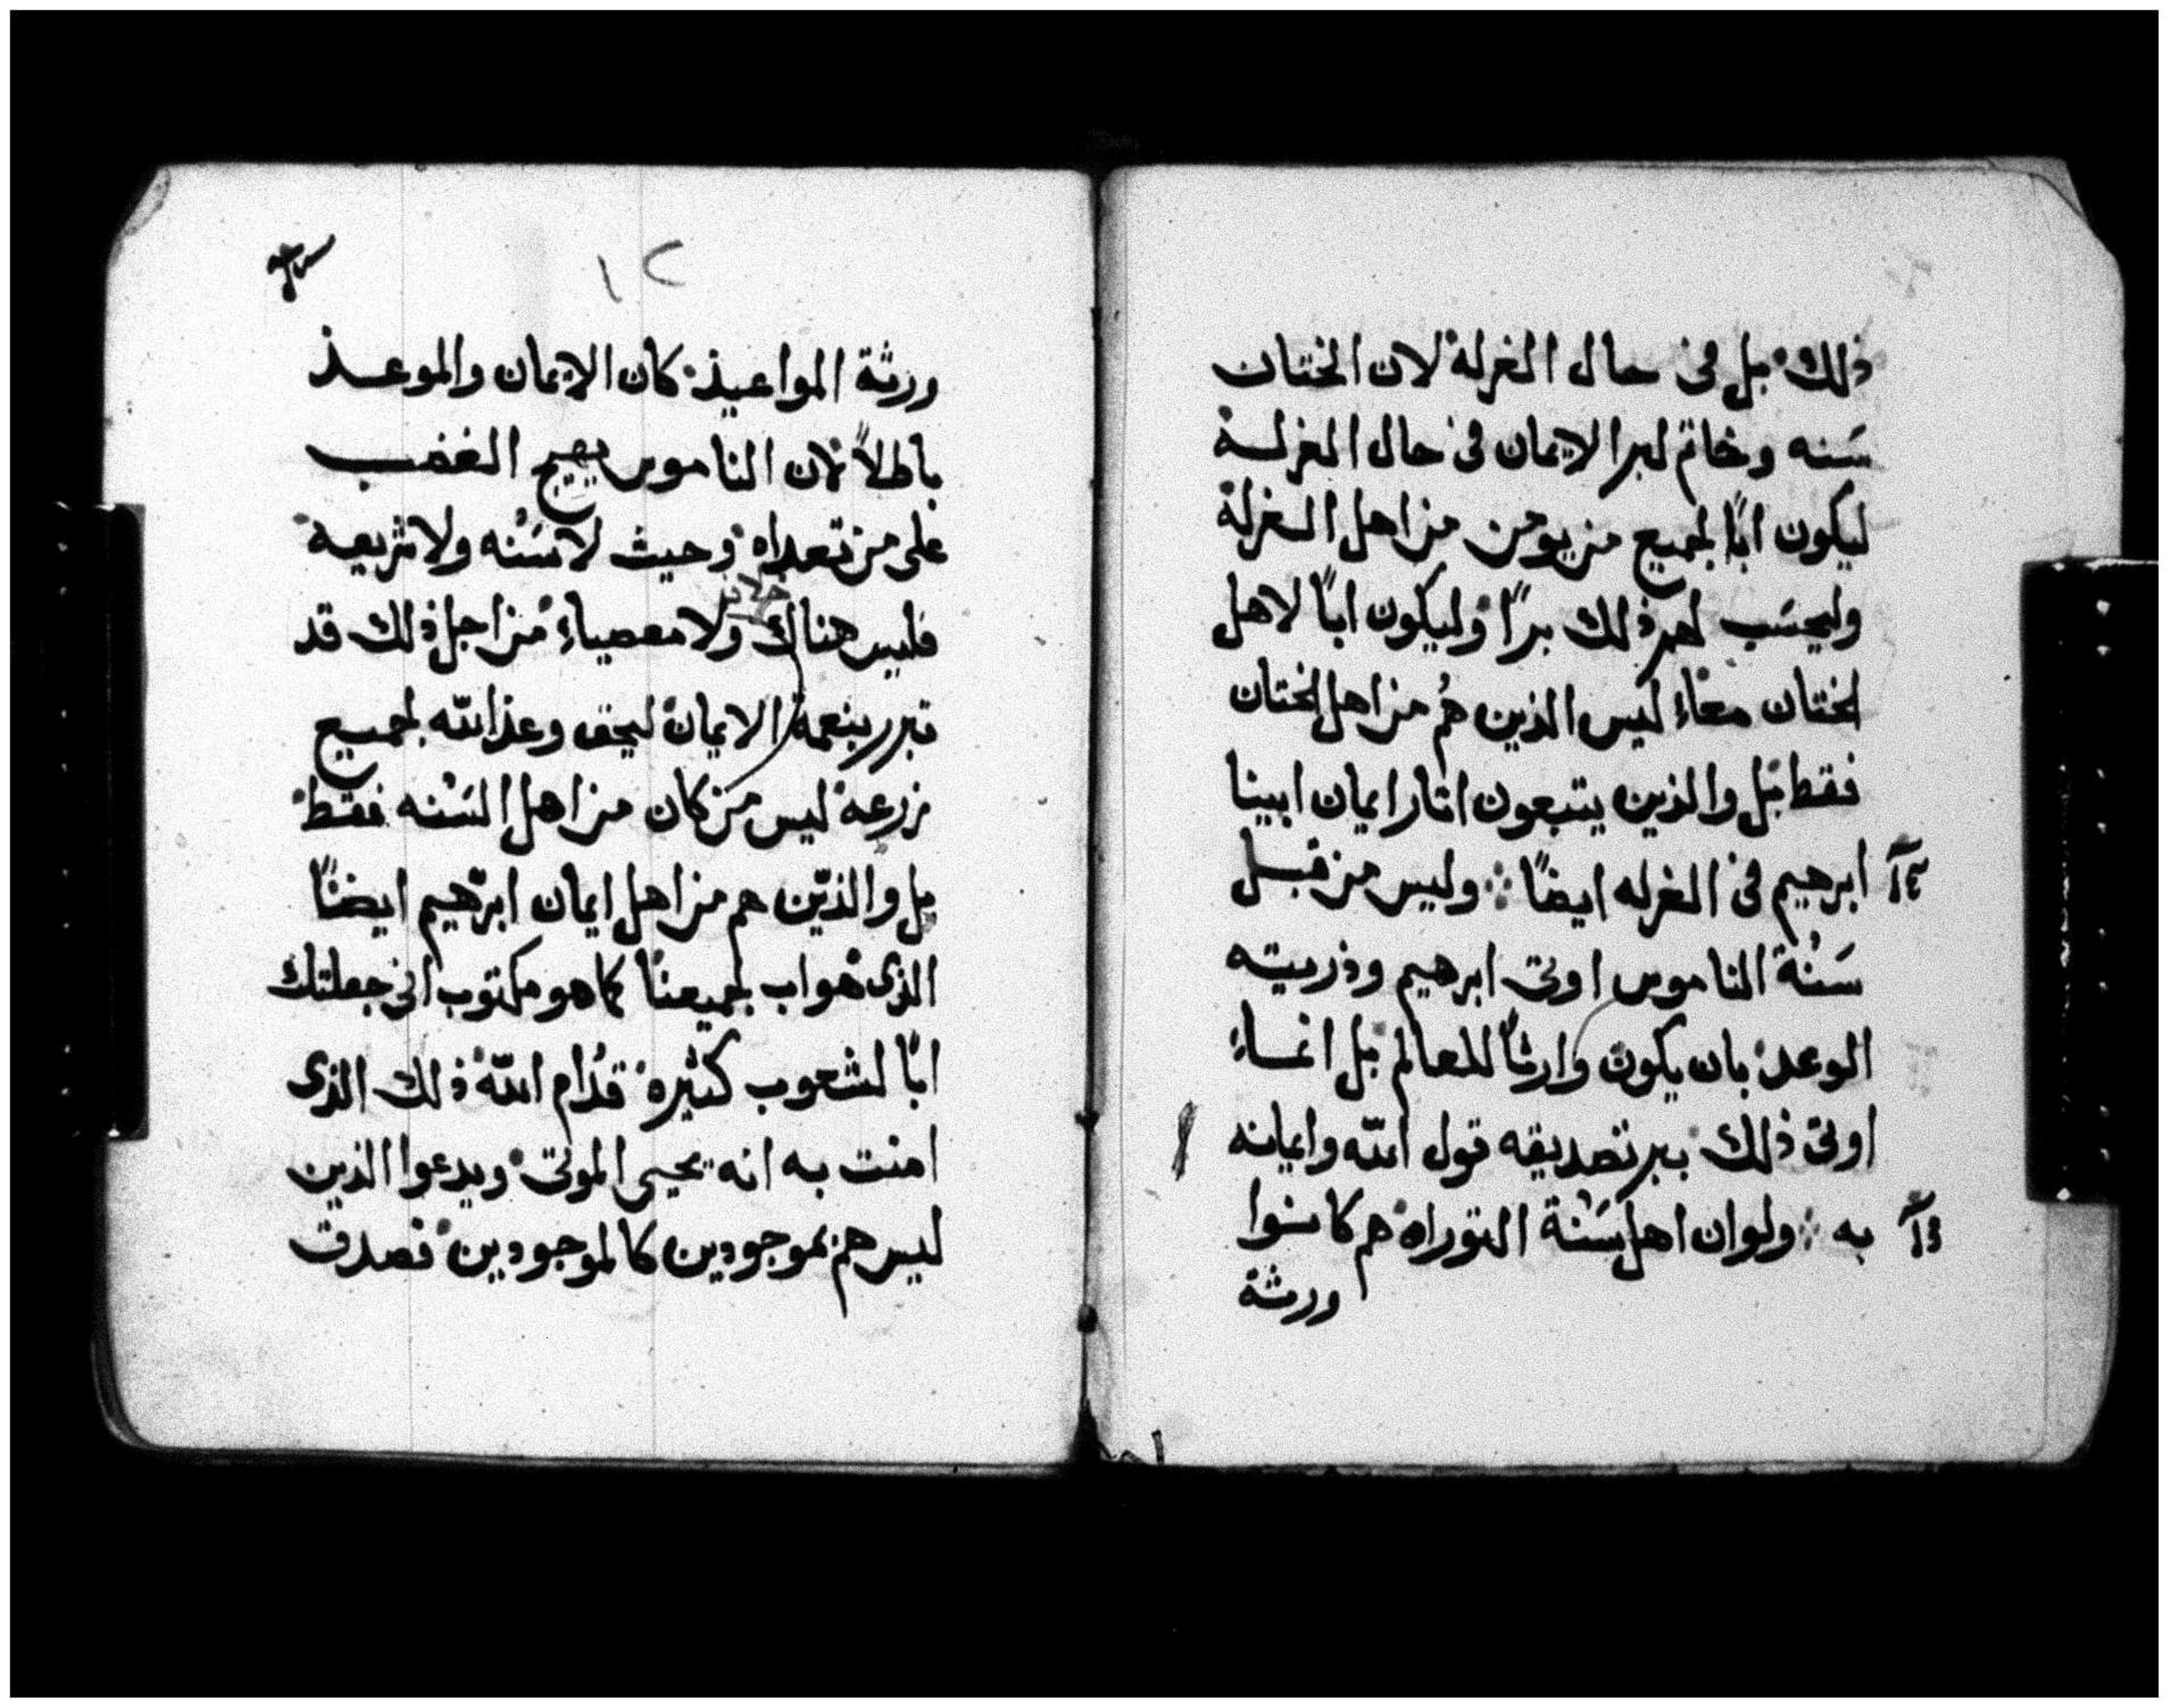 ذلك بل فى حال الغرلة لان الختان
سَنه وخاتم لبر الايمان فى حال الغرلة
ليكون ابًا لجميع من يومن من اهل الغرلة
وليحسَب لهم ذلك برًا وليكون ابًا لاهل
الختان معًا ليس الذين هُم من اهل الختان
فقط بل والذين يتبعون اثار ايمان ابينا
ابرهيم فى الغرله ايضًا ⁘ وليس من قبل
سَنُة الناموس اوتى ابرهيم وذريته
الوعد بان يكون وارثًا للعالم بل انما
اوتى ذلك ببر تصديقه قول الله وايمانه
به ⁘ ولو ان اهل سَنُة التوراه هم كانوا
ورثة
١٢
ورثة المواعيد كان الايمان والموعد
باطلاً لان الناموس يهيج الغضب
على من تعداه وحيث لا سَنُه ولا شريعة
فليس هناك ولا معصياء من اجل ذلك قد
تبرر بنعمة الايمان ليحق وعد الله لجميع
زرعه ليس من كان من اهل السَنُه فقط
بل والذين هم من اهل ايمان ابرهيم ايضًا
الذى هو اب لجميعنا كما هو مكتوب انى جعلتك
ابًا لشعوب كثيره قدُام الله ذلك الذى
امنت به انه يحيى الموتى ويدعوا الذين
ليس هم بموجودين كالموجودين فصدق